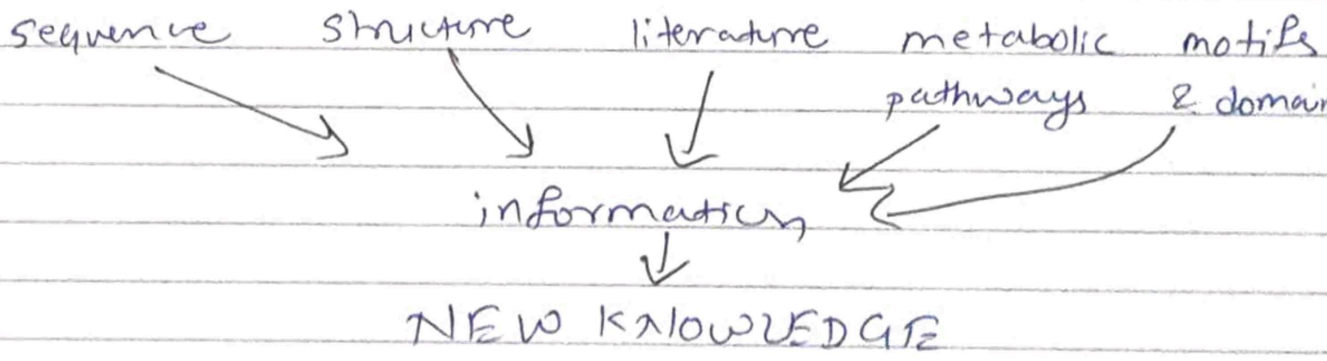 sequence structure literature metabolic motifs
pathways & domain
information
NEW KNOWLEDGE